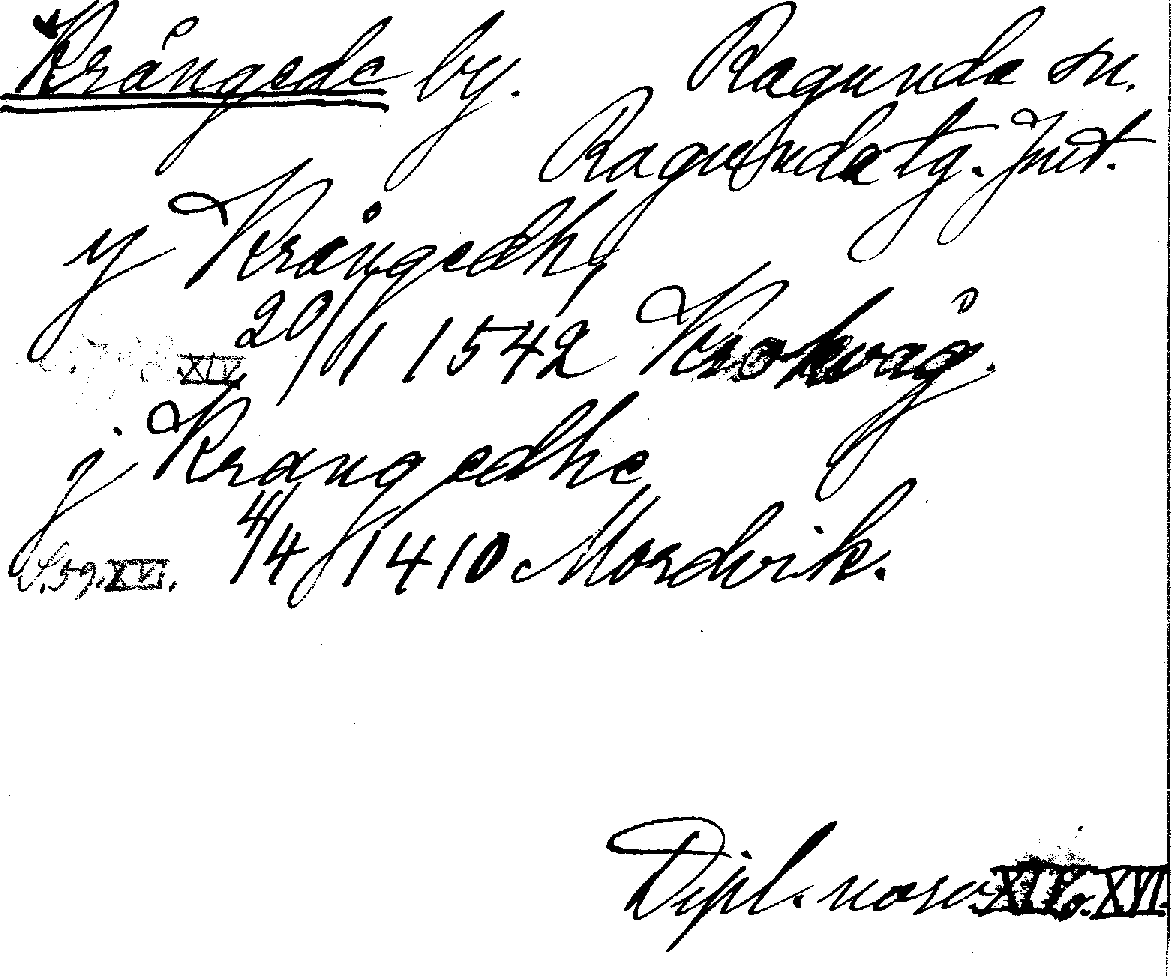 Krångede by. Ragunda sn.
Ragunda tg. Jmt.
y Krångedh,
XIV 20/1 1542 Krokvåg.
j Krangedhe
S. 59. XVI. 4/4 1410 Mordvik.
Dipl. norv. XIV o. XVI.